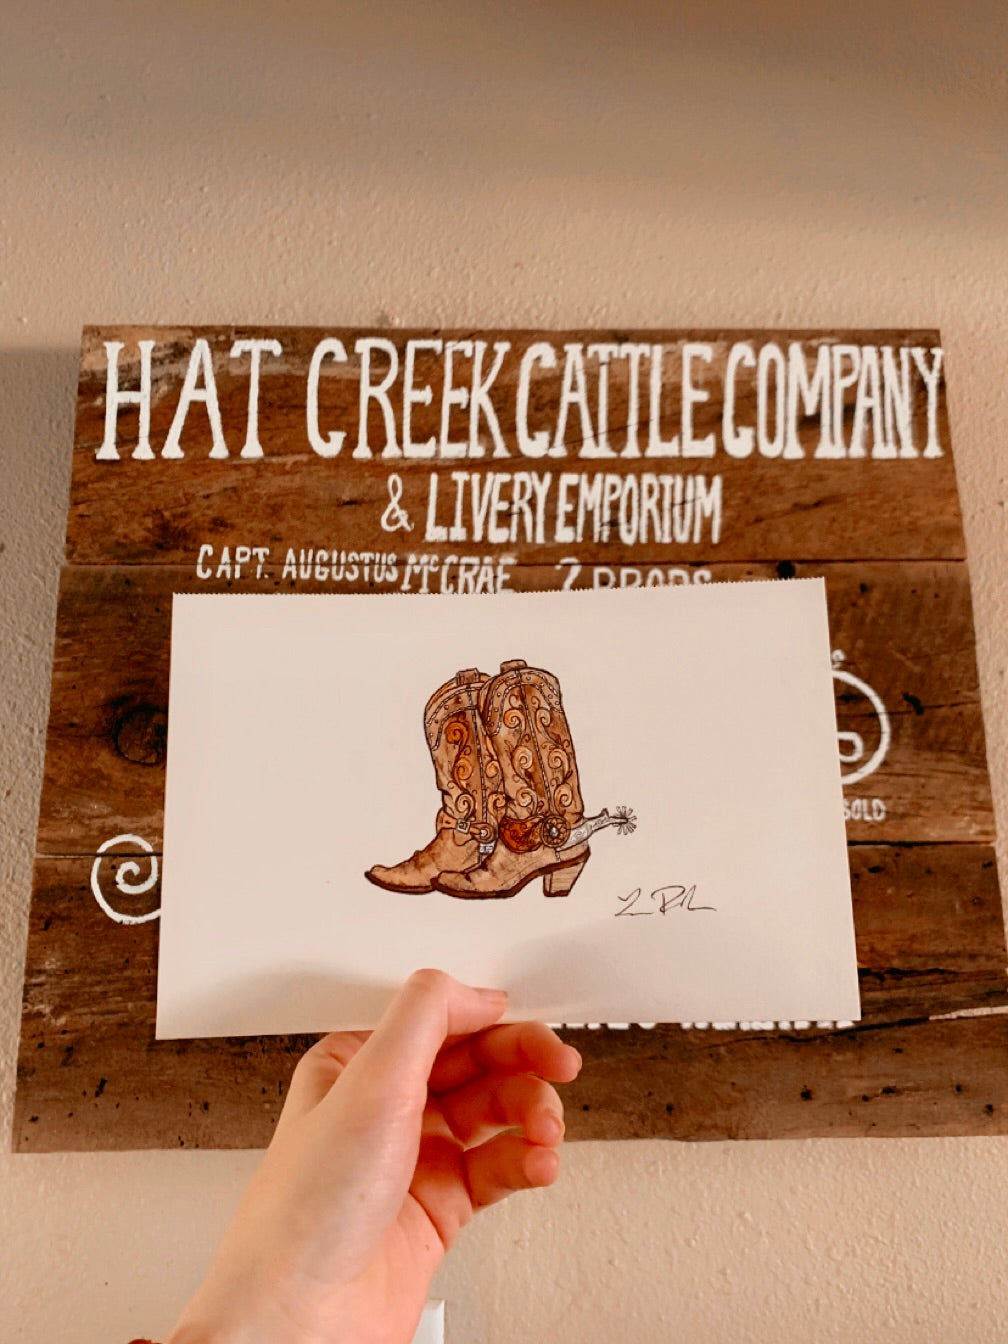 HAT CREEK CATTLE COMPANY
& LIVERY EMPORIUM
CAPT. AUGUSTUS McCRAE
SOLD